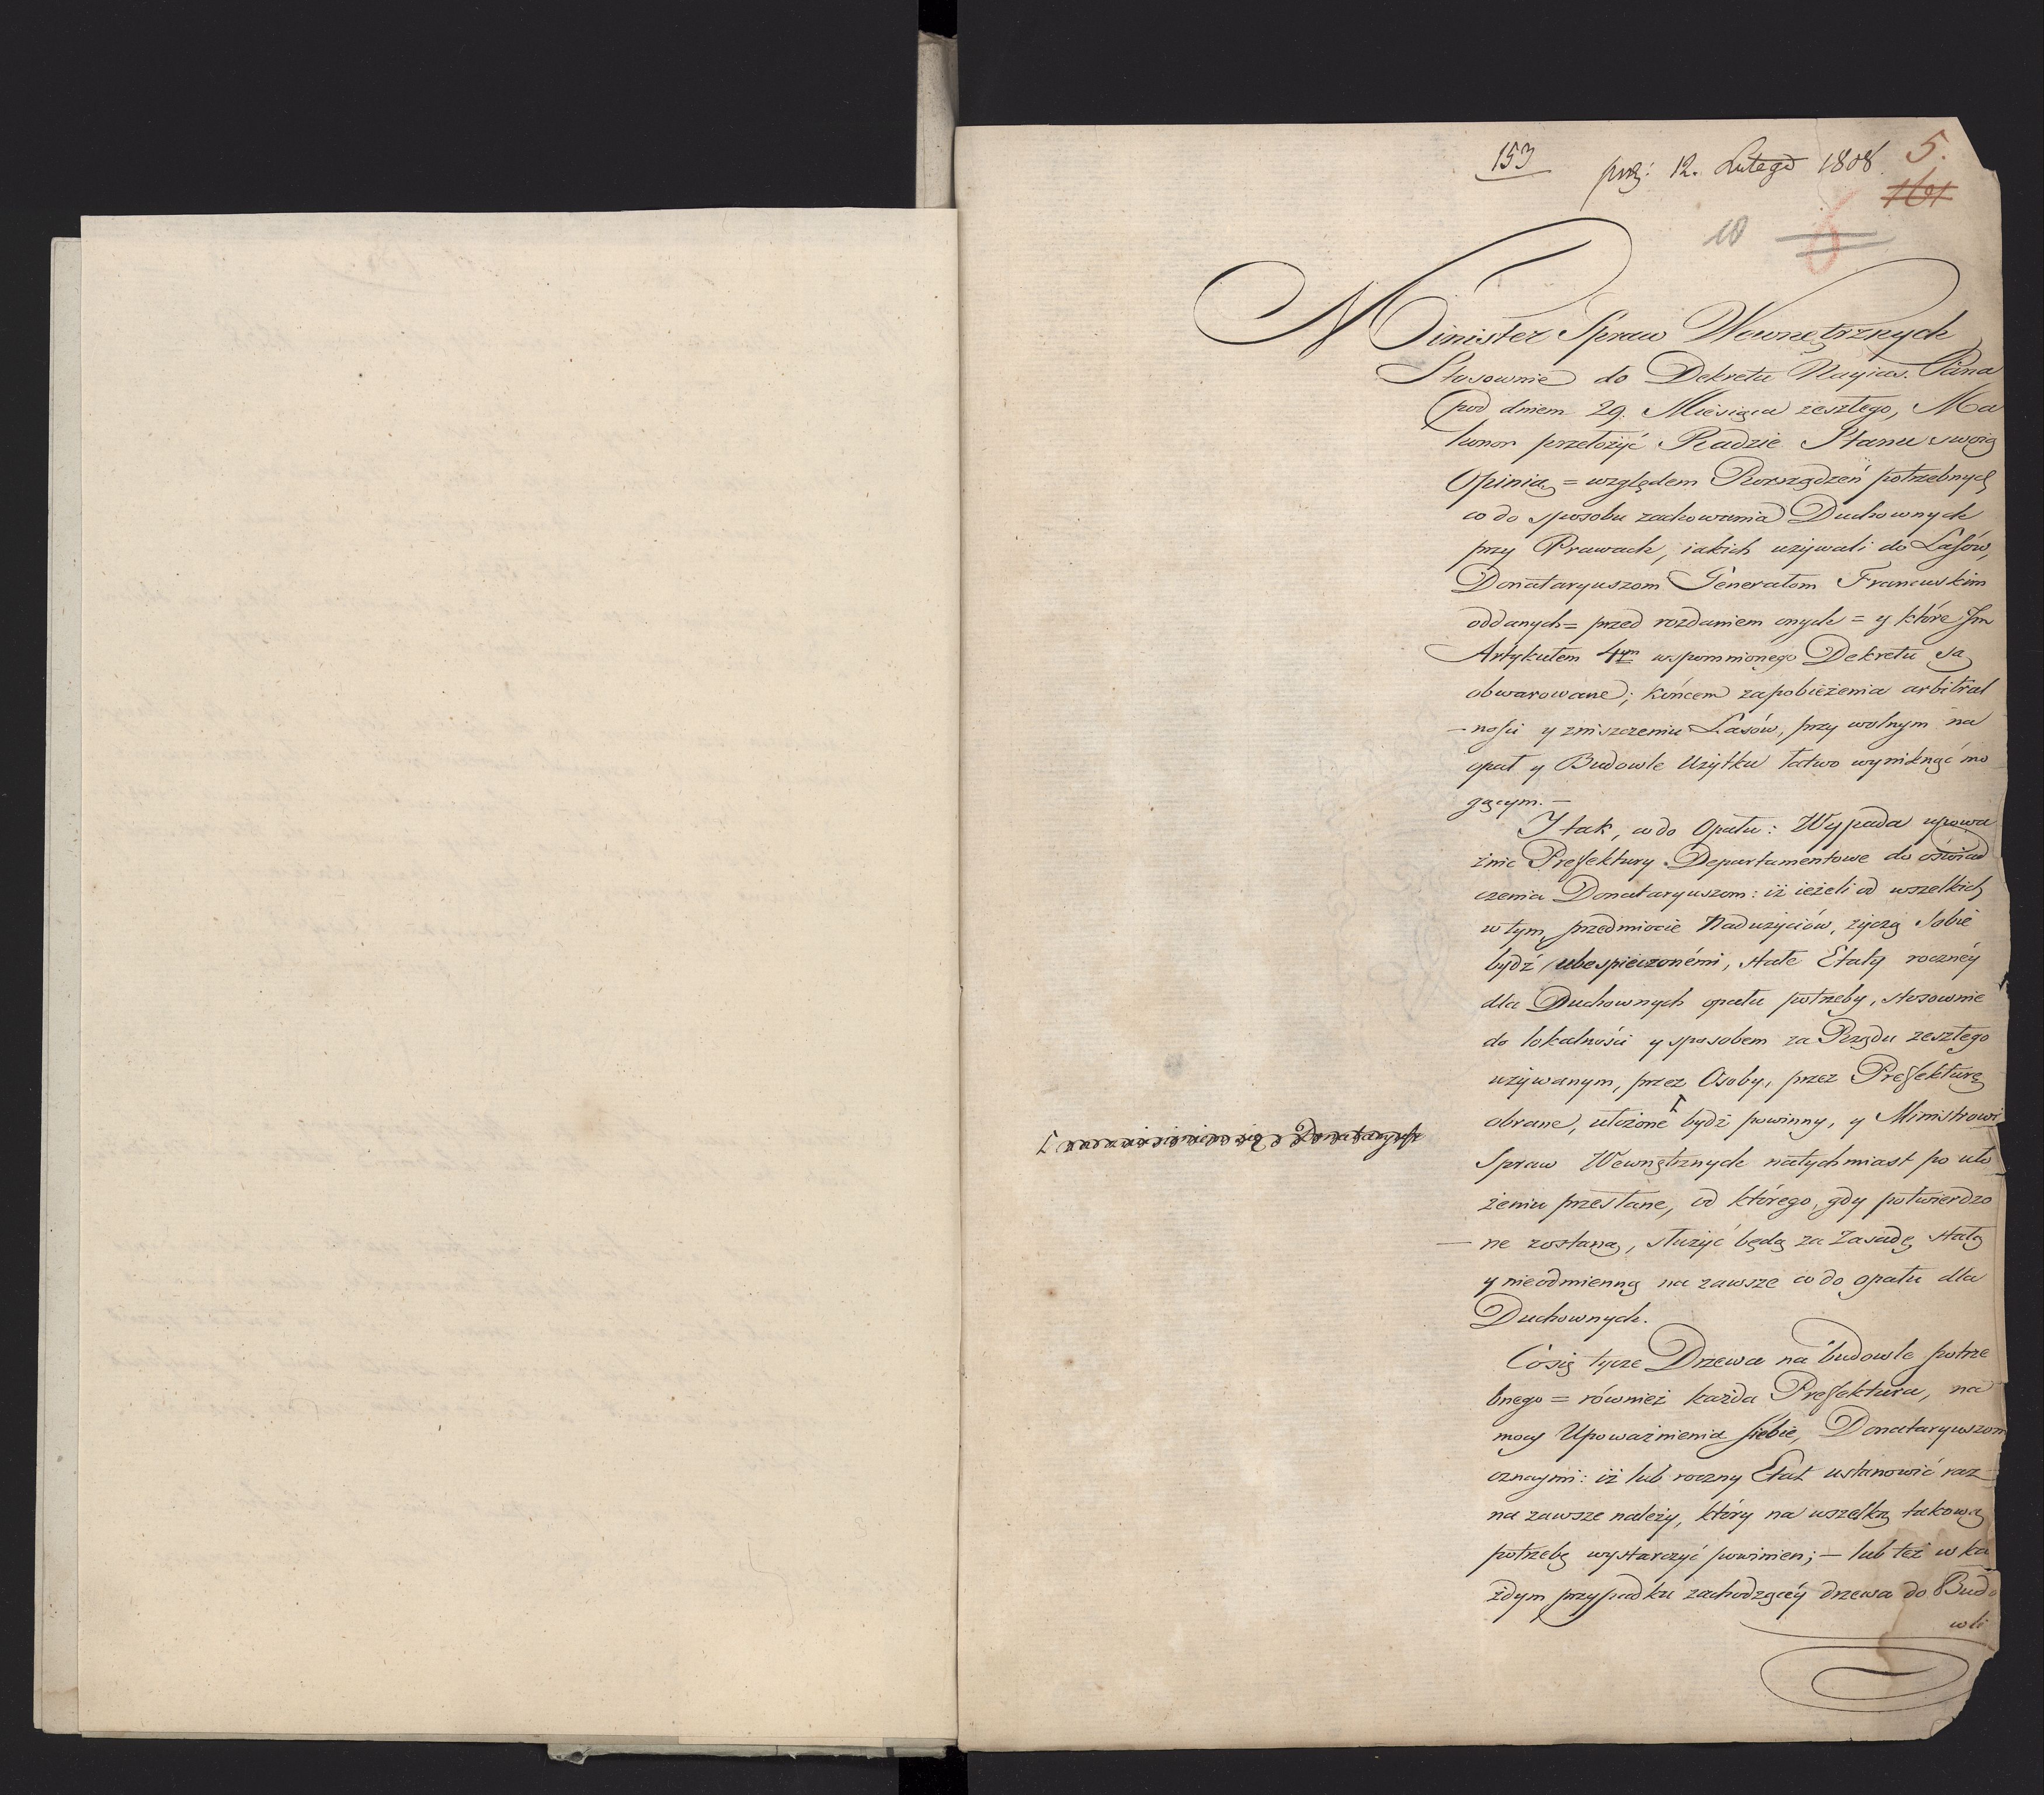 153
prez: 12. Lutego 1808.
5.
161
10
6
Minister Spraw Wewnętrznych
Stosownie do Dekretu Nayias. Pana
pod dniem 29. Miesiąca zeszłego, Ma
honor przełożyć Radzie Stanu swoią
Opinią = względem Rozrządzeń potrzebnych
co do sposobu zachowania Duchownych
przy Prawach, iakich używali do Lasów,
Donataryuszom Generałom Francuskim
oddanych = przed rozdaniem onych = y które Jm
Artykułem 4ym wspomnionego Dekretu są
obwarowane; końcem zapobieżenia arbitral
-ności y zniszczeniu Lasów, przy wolnym na
opał y Budowle Użytku łatwo wyniknąć mo
gącym. —
I tak, co do Opału: Wypada upowa
żnić Prefektury Departamentowe do oświad
czenia Donataryuszom: iż ieżeli od wszelkich
w tym przedmiocie Nadużyciów, życzą sobie
bydź ubespieczonémi, stałe Etaty roczney
dla Duchownych opału potrzeby, stosownie
do lokalności y sposobem za Rządu zeszłego
używanym, przez Osoby, przez Prefekturę
obrane, ułożone bydź powinny, y Ministrowi
Spraw Wewnętrznych natychmiast po uło
żeniu przesłane, od którego, gdy potwierdzo
- ne zostaną, służyć będą za Zasadę stałą
y nieodmienną na zawsze co do opału dla
Duchownych.
Co się tycze Drzewa na budowle potrze
bnego = również każda Prefektura, na
mocy Upoważnienia siebie, Donataryuszom
oznaymi: iż lub roczny Etat ustanowić raz
na zawsze należy, który na wszelką takową
potrzebę wystarczyć powinien; — lub też w ka
żdym przypadku zachodzącéy drzewa do Budo
wli